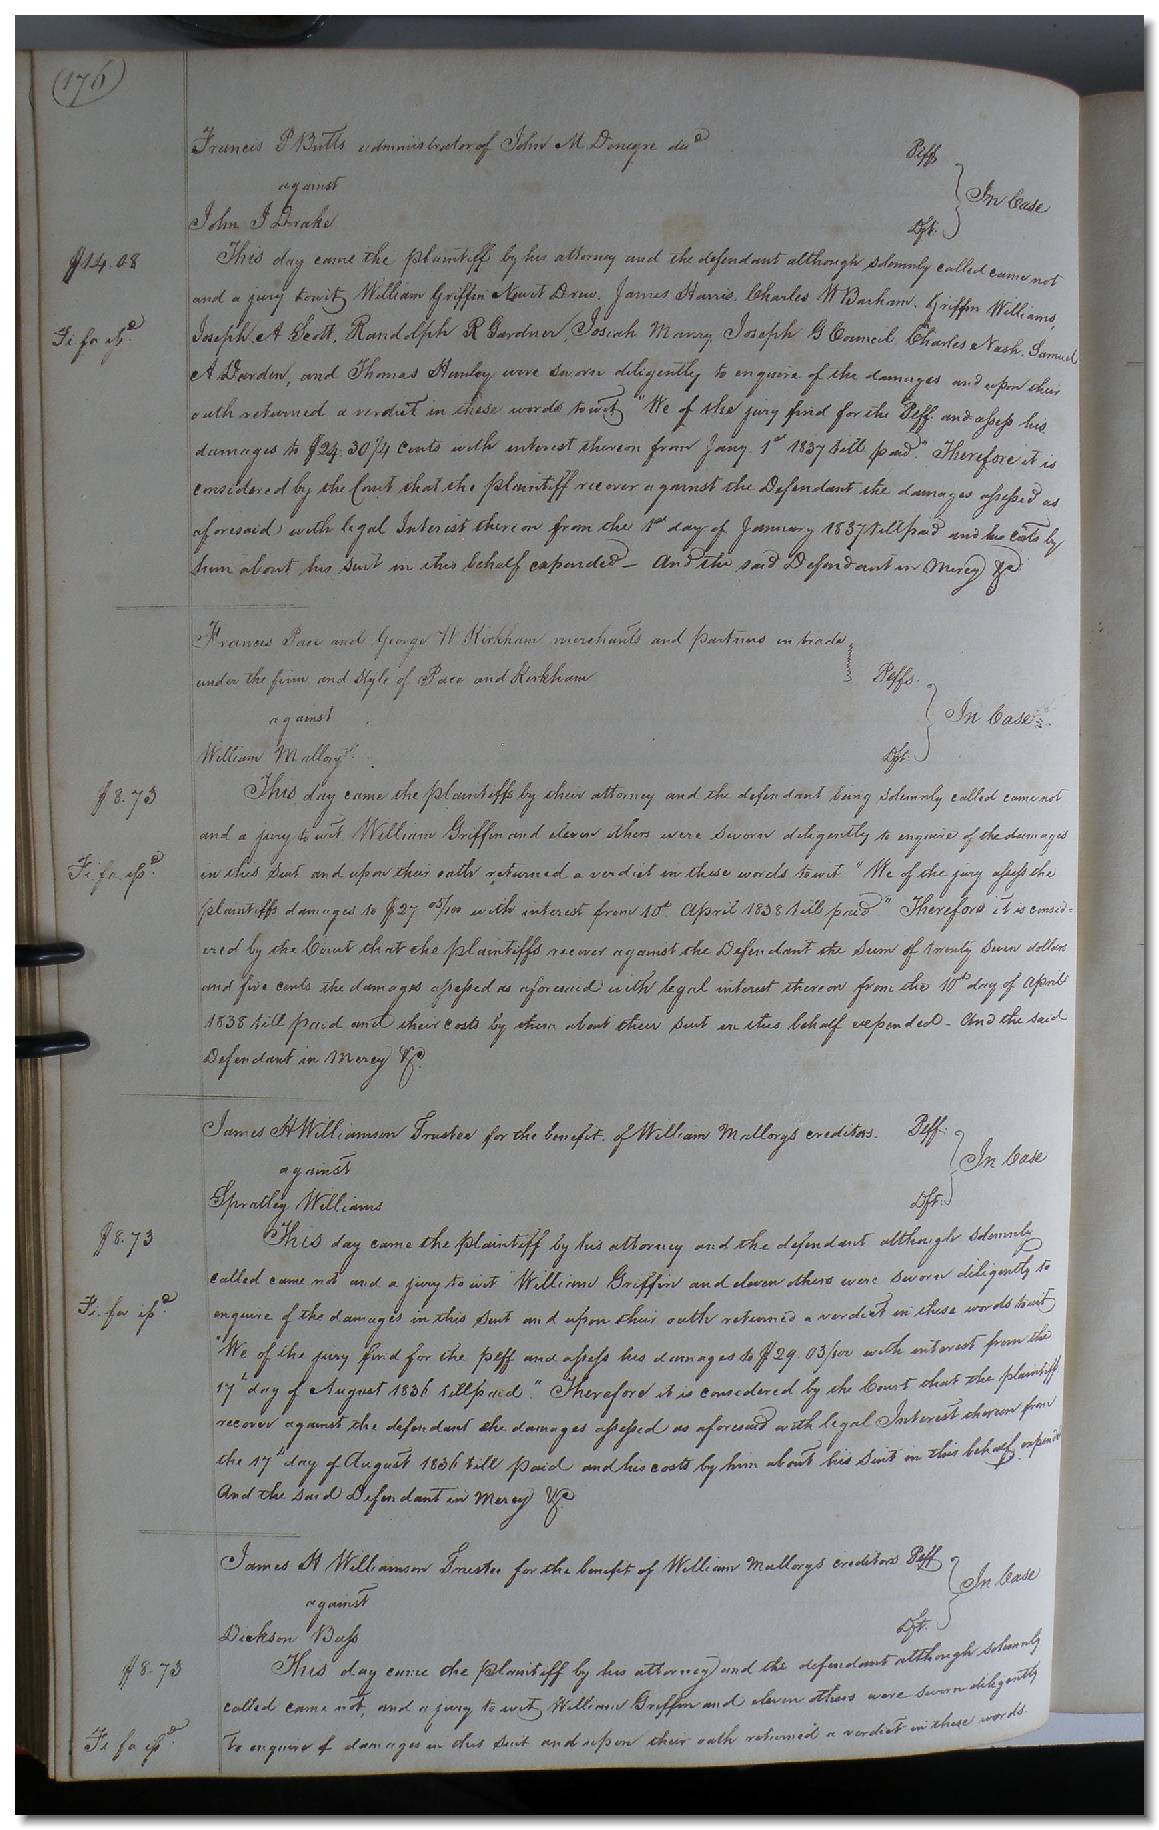 (176)
Francis P Butts administrator of John M Donegre decd Plff
against In Case
John J Drake Dft.
$14.08 This day came the plaintiff by his attorney and the defendant although solemnly called came not
and a jury towit William Griffin Newit Drew. James Harris. Charles W Barham. Griffin Williams,
Fi fa isd. Joseph A Scott, Randolph R Gardner, Josiah Manry Joseph G Council, Charles Nash, Samuel
A Darden, and Thomas Hunley were sworn diligently to enquire of the damages and upon their
oath returned a verdict in these words towit "We of the jury find for the Plff. and assess his
damages to $24.30/4 cents with interest thereon from Jany. 1st 1837 till paid". Therefore it is
considered by the Court that the plaintiff recover against the Defendant the damages assessed as
aforesaid with legal Interest thereon from the 1st day of January 1837 till paid and his costs by
him about his suit in this behalf expended – And the said Defendant in Mercy &c
Francis Pace and George W Kirkham merchants and partners in trade
under the firm and style of Pace and Kirkham Plffs.
against In Case
William Mallory Dft.
$8.73 This day came the plaintiffs by their attorney and the defendant being solemnly called came not
and a jury to wit William Griffin and eleven others were sworn diligently to enquire of the damages
Fi fa isd. in this suit and upon their oath returned a verdict in these words towit "We of the jury assess the
plaintiffs damages to $27 05/100 with interest from 10th April 1838 till paid" Therefore it is consid-
ered by the Court that the plaintiffs recover against the Defendant the sum of twenty seven dollars
and five cents the damages assessed as aforesaid with legal interest thereon from the 10th day of April
1838 till paid and their costs by them about their suit in this behalf expended – And the said
Defendant in Mercy &c.
James H Williamson Trustee for the benefit of William Mallorys creditors. Plff.
against In Case
Spratley Williams Dft.
$8.73 This day came the plaintiff by his attorney and the defendant although solemnly
called came not and a jury to wit William Griffin and eleven others were sworn diligently to
Fi. fa isd. enquire of the damages in this suit and upon their oath returned a verdict in these words towit
"We of the jury find for the plff and assess his damages to $29.03/100 with interest from the
17th day of August 1836 till paid." Therefore it is considered by the Court that the plaintiff
recover against the defendant the damages assessed as aforesaid with legal Interest thereon from
the 17th day of August 1836 till paid and his costs by him about his suit in this behalf expended
And the said Defendant in Mercy &c
James H Williamson Trustee for the benefit of William Mallorys creditors Plff
against In Case
Dickson Bass Dft.
$8.73 This day came the plaintiff by his attorney and the defendant although solemnly
called came not, and a jury to wit William Griffin and eleven others were sworn diligently
Fi fa isd. To enquire of damages in this suit and upon their oath returned a verdict in these words.